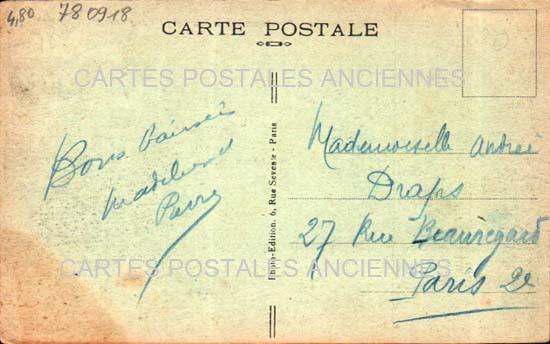 4,80 780918
CARTE POSTALE
CARTES POSTALES ANCIENNES
Bons baisers
Pierre
Photo-Edition, 6, Rue Seveste - Paris
Mademoiselle Andrée
Draps
27 Rue Beauregard
Paris 2e
CARTES POSTALES ANCIENNES